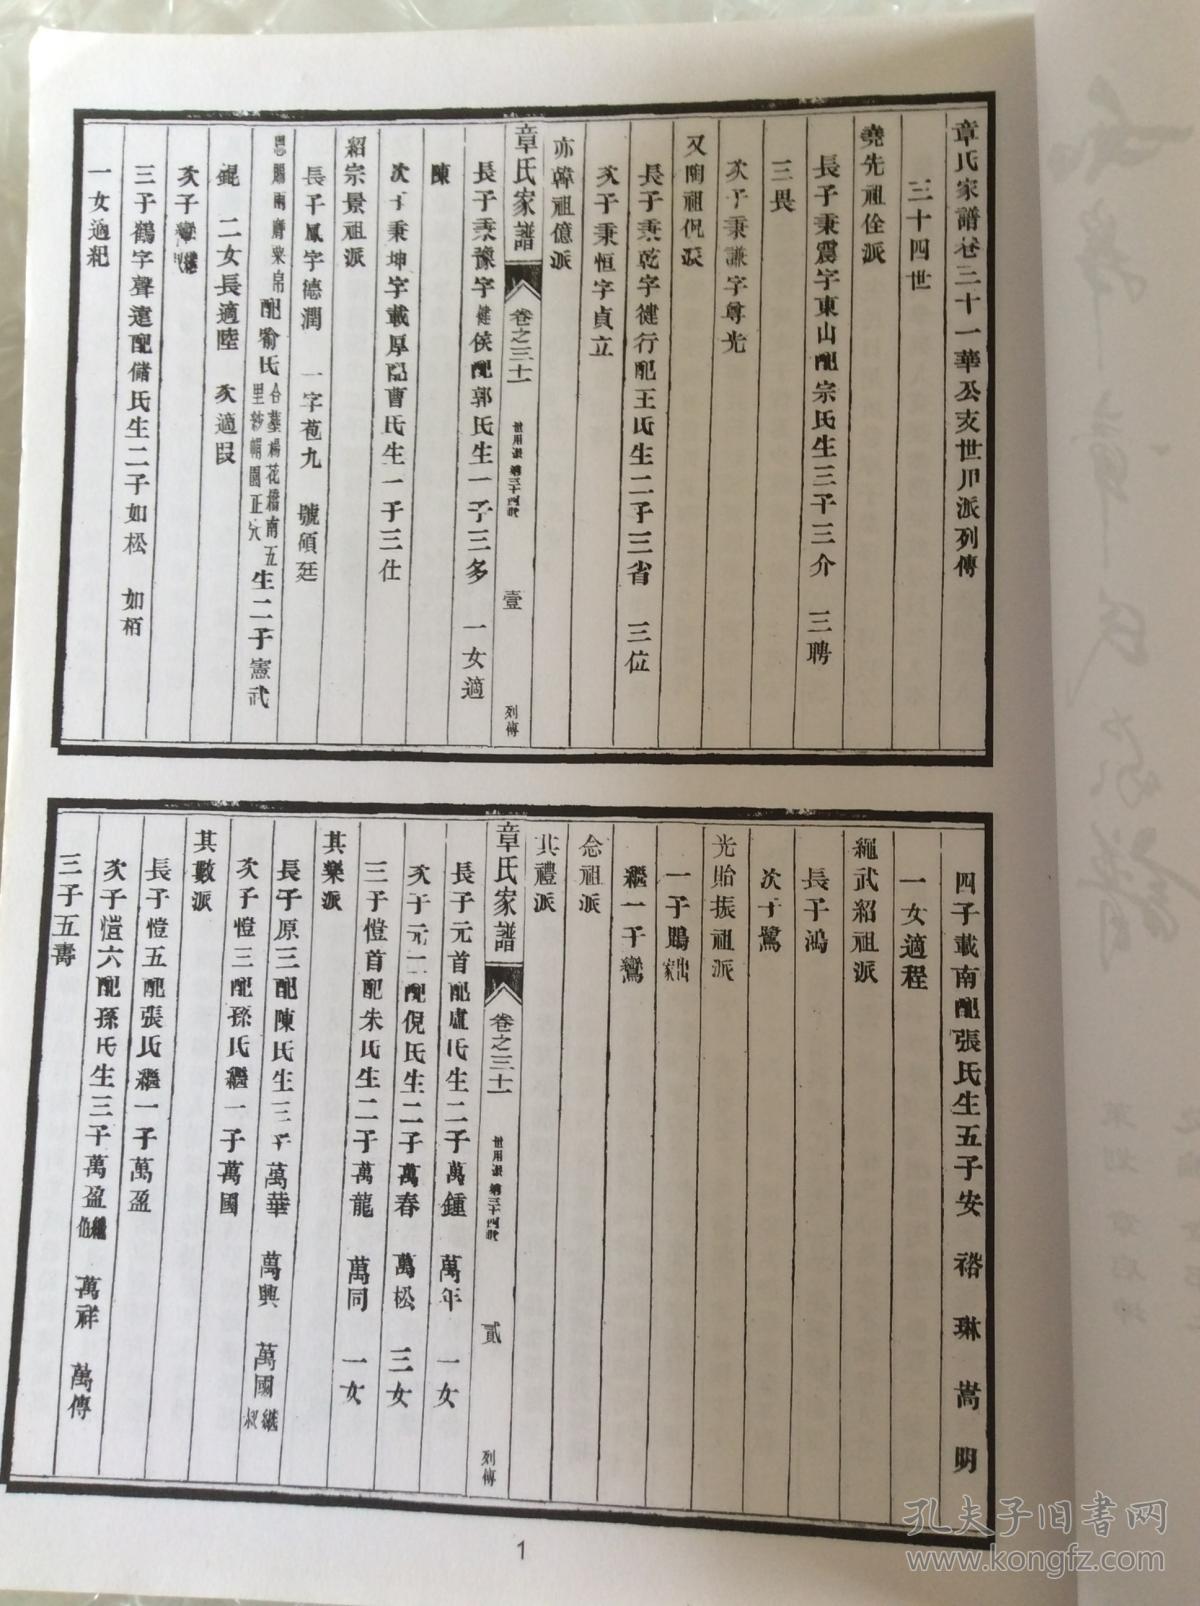 章氏家譜卷三十一華公支世用派列傳
三十四世
堯先祖佺派
長子秉震字東山配宗氏生三子三介　三聘
三畏
次子秉謙字尊光
又陶祖侃派
長子秉乾字健行配王氏生二子三省　三位
次子秉恒字貞立
亦韓祖億派
章氏家譜　卷之三十一　世用派　第三十四世　壹　列傳
長子秉豫字健侯配郭氏生一子三多　一女適
陳
次子秉坤字載厚配曹氏生一子三仕
紹宗景祖派
長子鳳字德潤　一字苞九　號碩廷
恩賜兩膺粟帛配喻氏合墓楊花橋南五里紗帽園正穴生二子憲武
錕　二女長適陸　次適段
次子
三子鶴字聲遠配儲氏生二子如松　如栢
一女適紀
四子載南配張氏生五子安　裕　琳　嵩　明
一女適程
繩武紹祖派
長子鴻
次子鷺
光貽振祖派
一子鵰出家
繼一子鸞
念祖派
其禮派
章氏家譜　卷之三十一　世用派　第三十四世　貳　列傳
長子元首配盧氏生二子萬鍾　萬年　一女
次子元二配倪氏生二子萬春　萬松　三女
三子愷首配朱氏生二子萬龍　萬同　一女
其樂派
長子原三配陳氏生三子萬華　萬興　萬國繼叔
次子愷三配孫氏繼一子萬國
其數派
長子愷五配張氏繼一子萬盈
次子愷六配孫氏生三子萬盈繼伯　萬祥　萬傳
三子五壽
1
孔夫子旧书网
www.kongfz.com